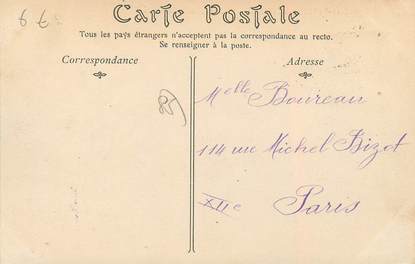 Carte Postale
Tous les pays étrangers n'acceptent pas la correspondance au recto.
Se renseigner à la poste.
Correspondance
Adresse
Melle Boureau
114 rue Michel Bizot
XIIe Paris